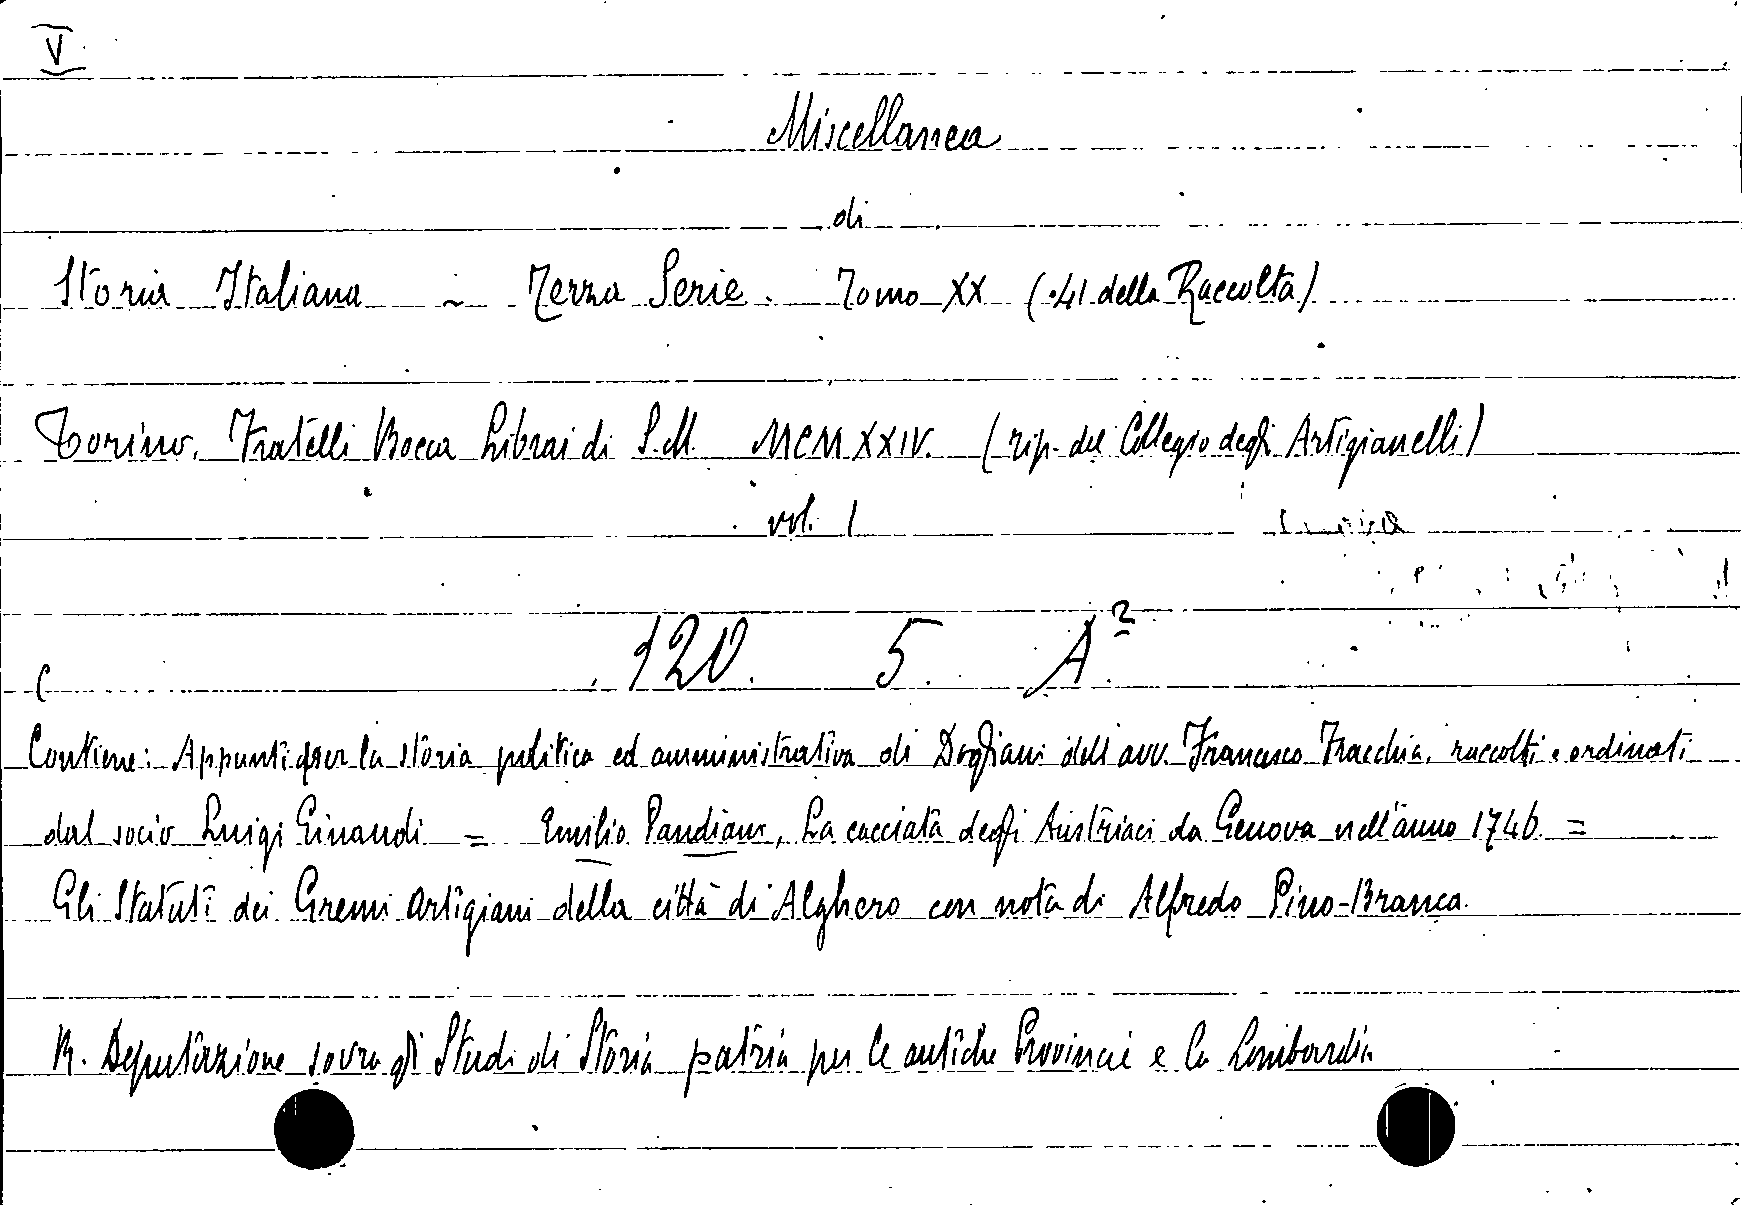 V
Miscellanea
di
Storia Italiana - Terza Serie. Tomo XX (41 della Raccolta)
Torino. Fratelli Bocca Librai di S.M. MCMXXIV. (tip. del Collegio degli Artigianelli)
vol. 1
120. 5. A²
Contiene: Appunti per la storia politica ed amministrativa di Dogliani dell'avv. Francesco Fracchia, raccolti e ordinati
dal socio Luigi Einaudi = Emilio Pandiani, La cacciata degli Austriaci da Genova nell'anno 1746. =
Gli Statuti dei Gremi artigiani della città di Alghero con nota di Alfredo Pino-Branca.
R. Deputazione sovra gli Studi di Storia patria per le antiche Provincie e la Lombardia